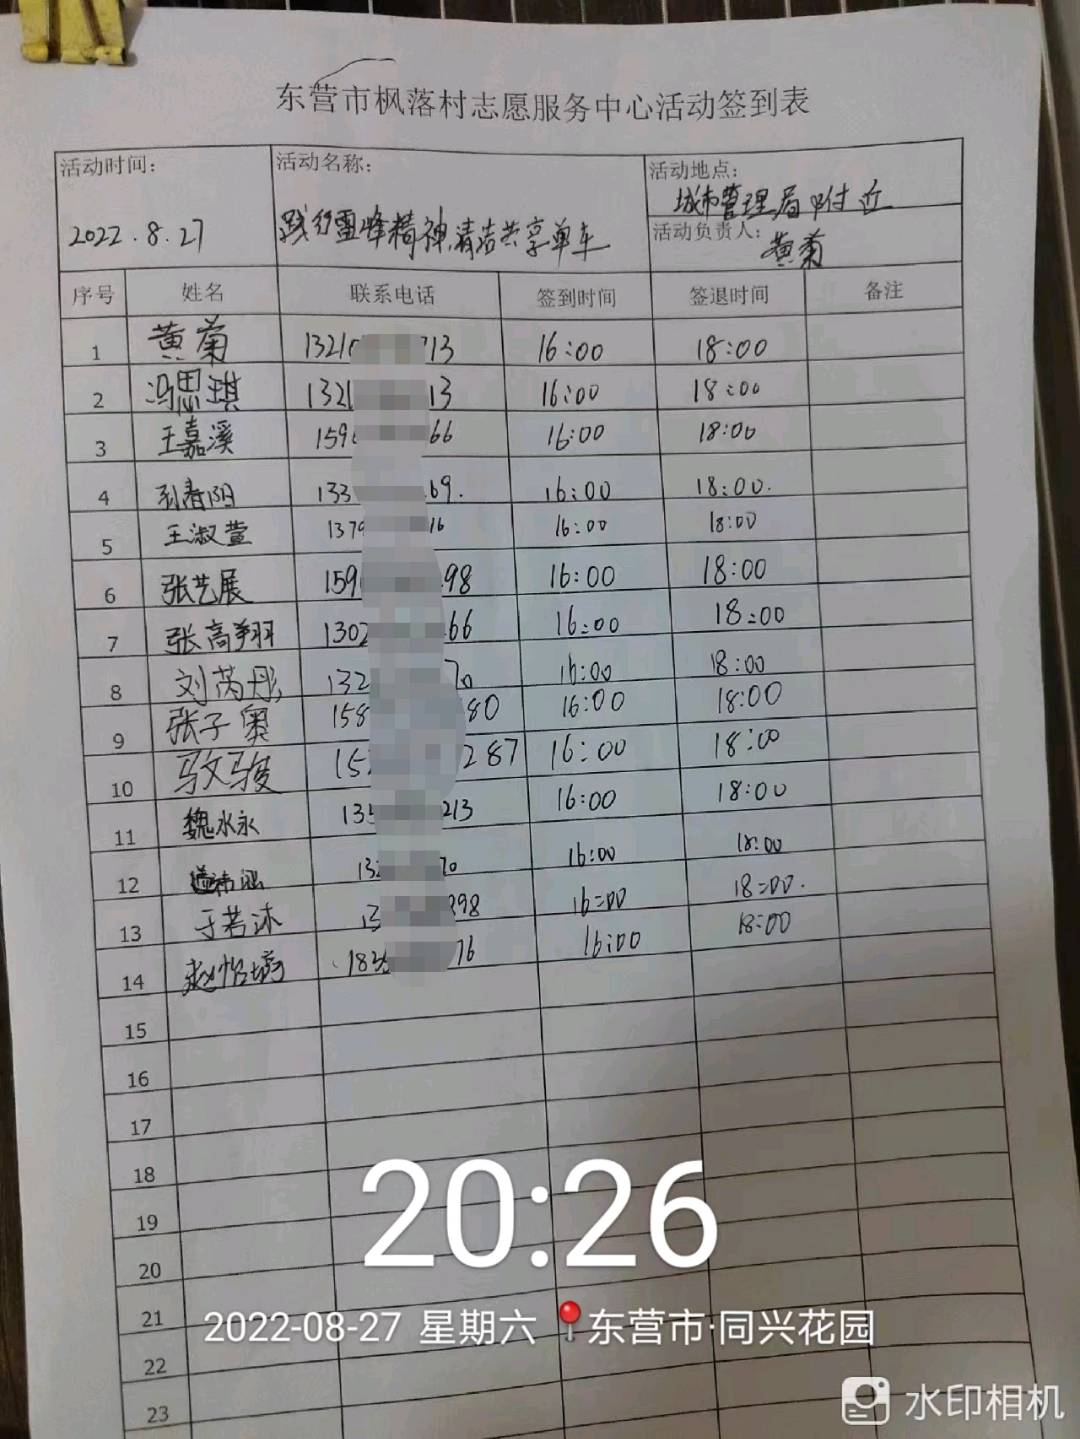 东营市枫落村志愿服务中心活动签到表
活动时间： 活动名称： 活动地点：
城市管理局附近
2022.8.27 践行雷峰精神,清洁共享单车 活动负责人：
黄菊
序号 姓名 联系电话 签到时间 签退时间 备注
1 黄菊 1321 13 16:00 18:00
2 冯思琪 132 13 16:00 18:00
3 王嘉溪 159 66 16:00 18:00
4 孙春阳 133 69. 16:00 18:00.
5 王淑萱 137 16 16:00 18:00
6 张艺展 159 98 16:00 18:00
7 张高翔 1302 66 16:00 18:00
8 刘芮彤 132 70 16:00 18:00
9 张子奥 158 80 16:00 18:00
10 马文骏 15 287 16:00 18:00
11 魏水永 135 213 16:00 18:00
12 13 70 16:00 18:00
13 于若沐 13 98 16:00 18:00.
14 183 76 16:00 18:00
15
16
17
18
19
20
21
22
23
20:26
2022-08-27 星期六 东营市·同兴花园
水印相机